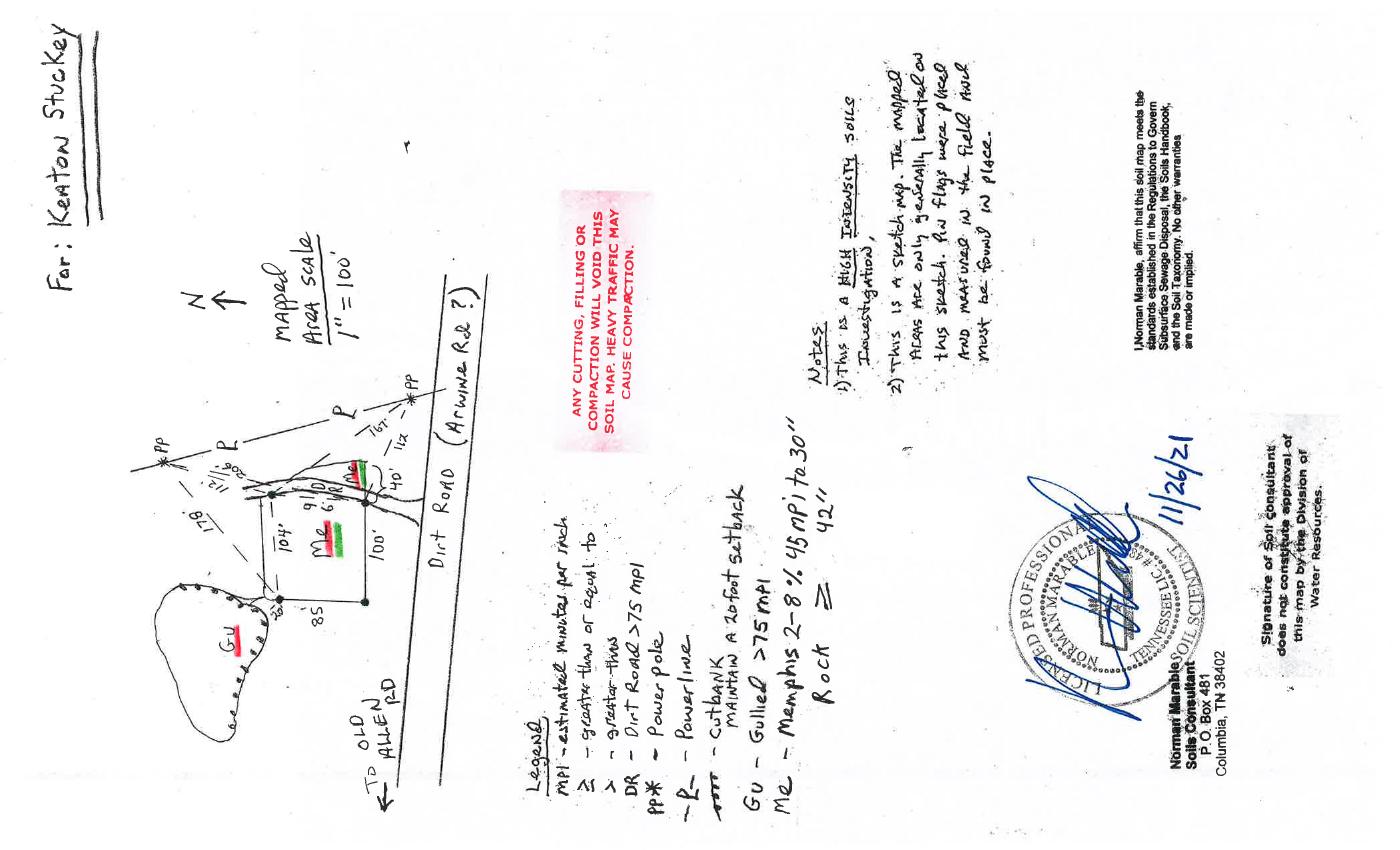 For: Keaton Stuckey
N
Mapped
Area Scale
1" = 100'
PP
P
P
PP
178'
112'
167'
112
104'
Me
Me
DR
40'
100'
85'
20'
Gu
Dirt Road (Arwine Rd ?)
← To OLD
ALLEN
RD
Legend
MPI - estimated minutes per inch
≥ - greater than or equal to
> - greater than
DR - Dirt Road >75 MPI
PP* - Power pole
-P- - Powerline
- Cutbank
MAINTAIN A 20 foot setback
Gu - Gullied >75 MPI
Me - Memphis 2-8% 45 MPI to 30"
Rock ≥ 42"
ANY CUTTING, FILLING OR
COMPACTION WILL VOID THIS
SOIL MAP. HEAVY TRAFFIC MAY
CAUSE COMPACTION.
Notes
1) This is a HIGH INTENSITY Soils
Investigation,
2) This is a sketch map. The mapped
Areas are only generally located on
this sketch. Pin flags were placed
And measured in the field And
must be found in place.
LICENSED PROFESSIONAL
SOIL SCIENTIST
NORMAN MARABLE
TENNESSEE LIC #
11/26/21
Norman Marable
Soils Consultant
P.O. Box 481
Columbia, TN 38402
I,Norman Marable, affirm that this soil map meets the
standards established in the Regulations to Govern
Subsurface Sewage Disposal, the Soils Handbook,
and the Soil Taxonomy. No other warranties
are made or implied.
Signature of Soil Consultant
does not constitute approval of
this map by the Division of
Water Resources.